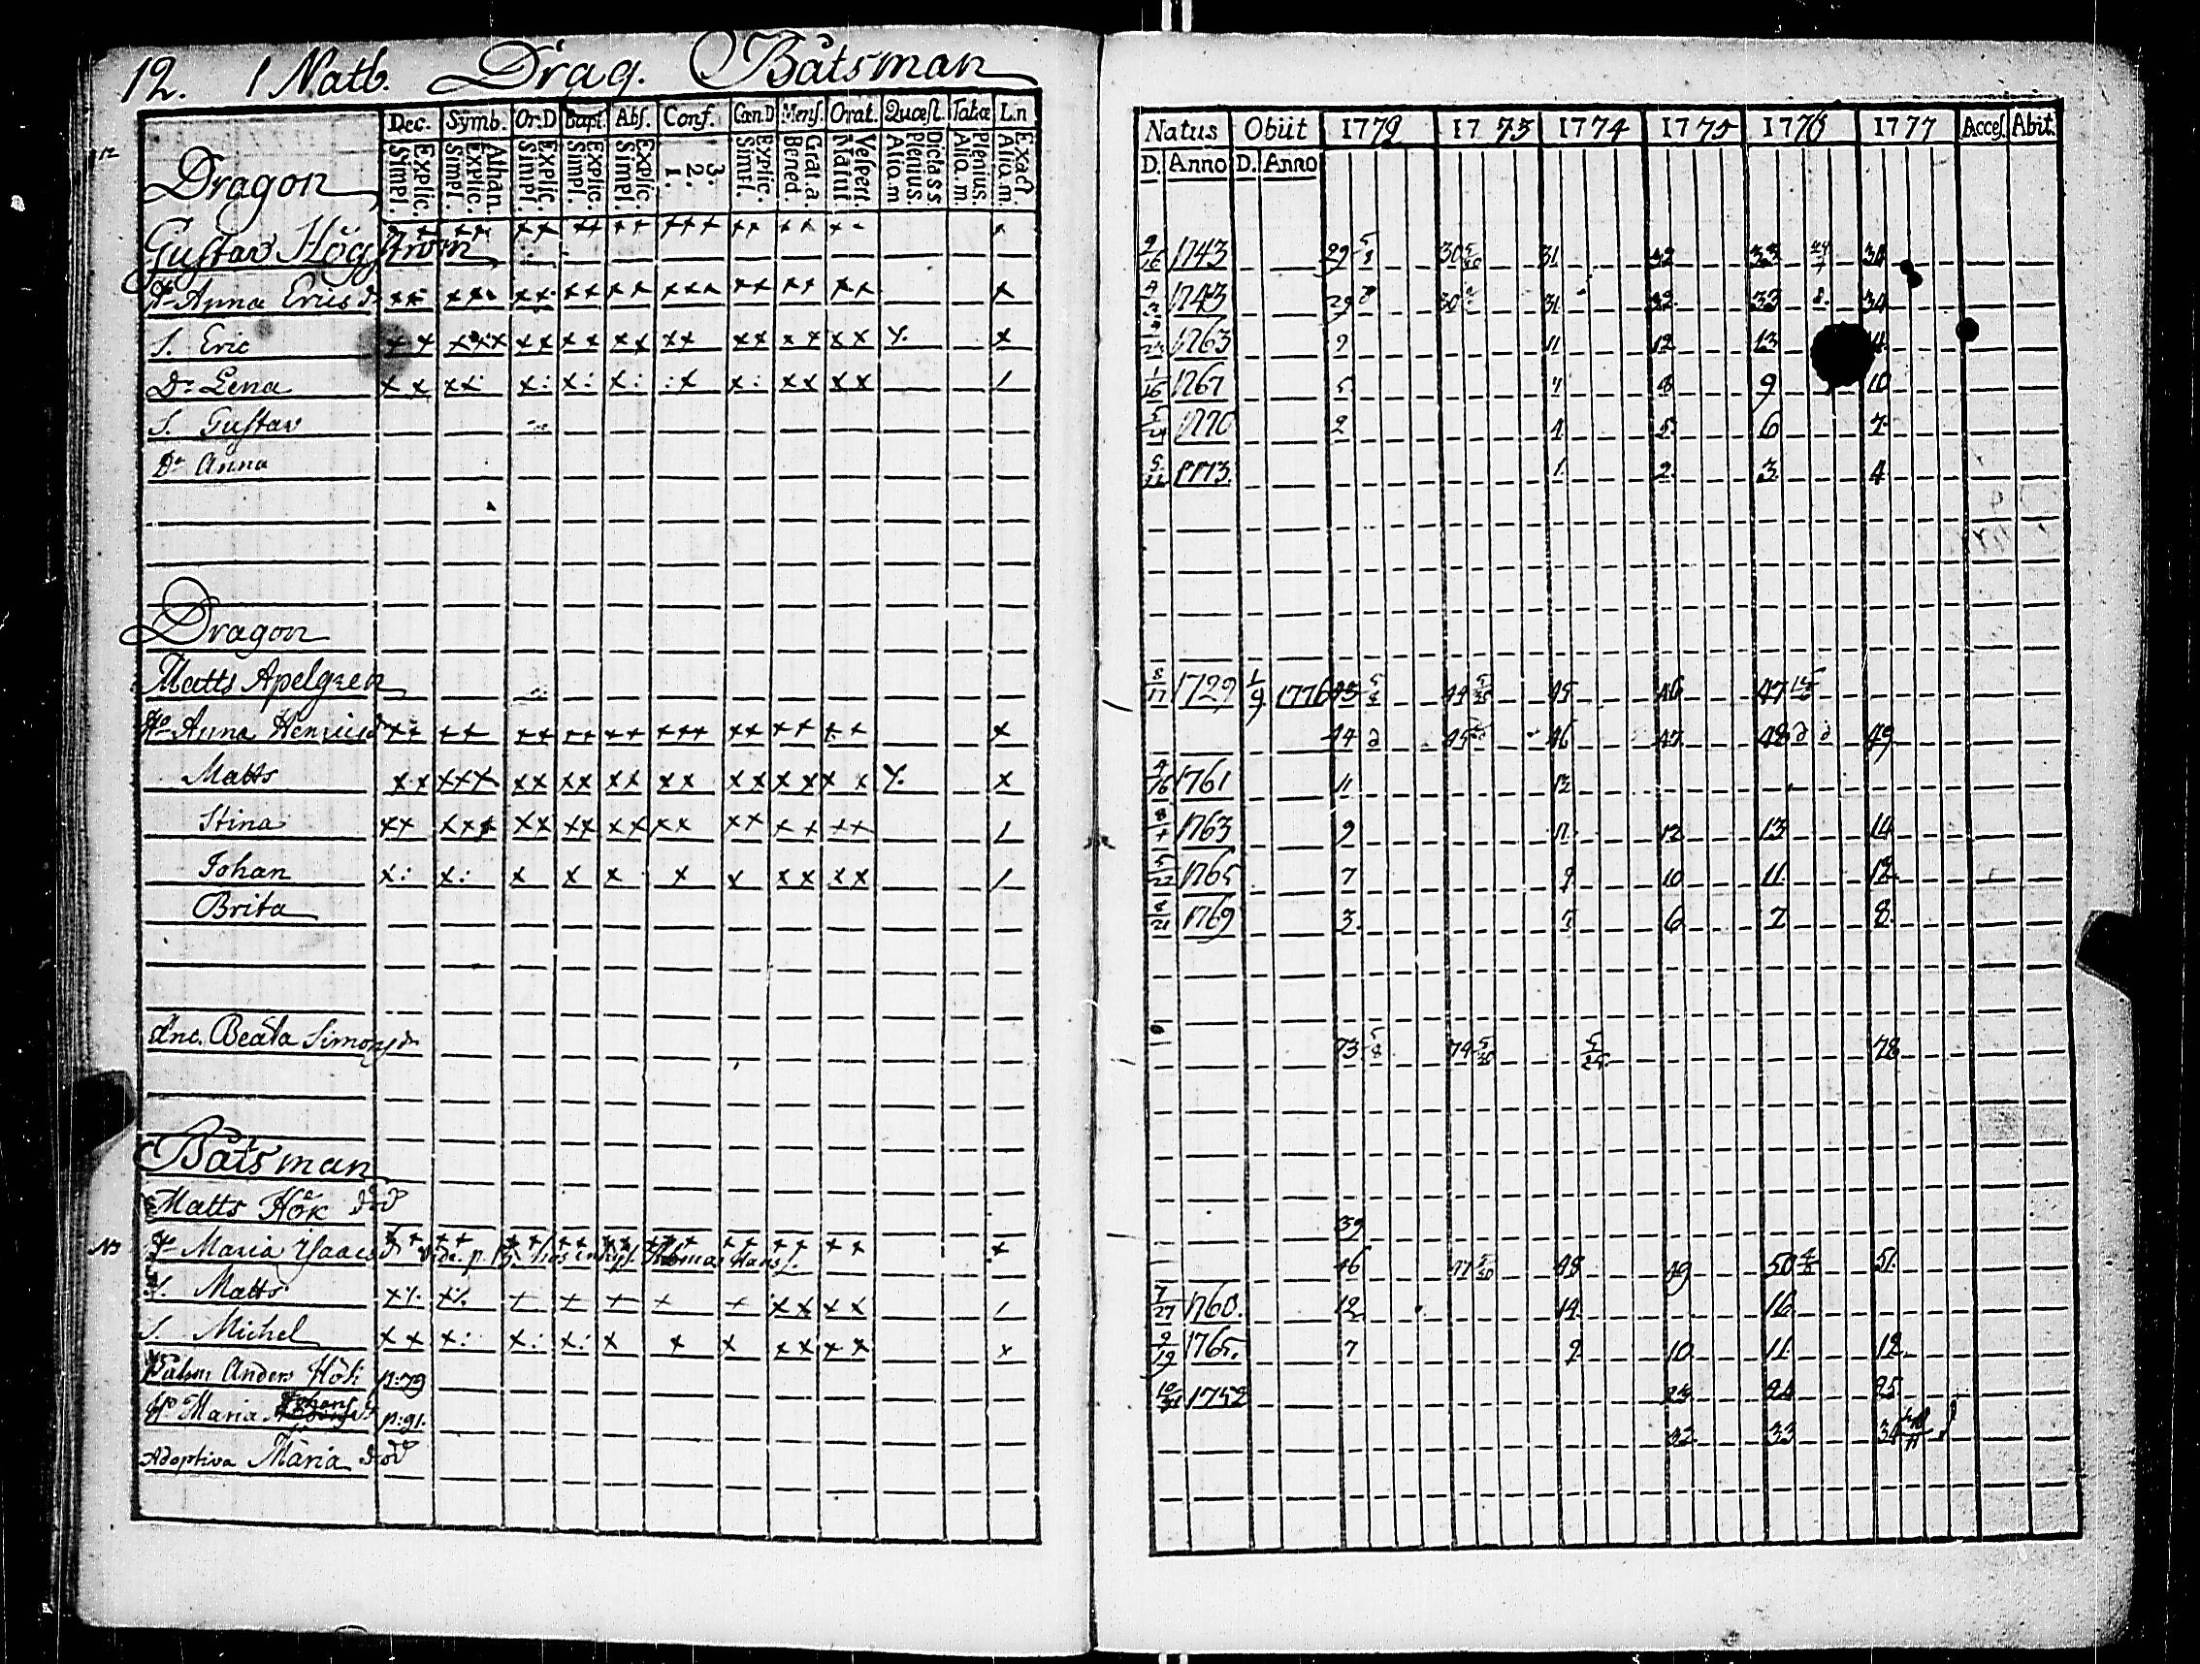 12. 1 Natb. Drag. Båtsman
Dec. Symb. Or.D Bapt. Abs. Conf. Cœn.D Mens. Orat. Quæst. Tatæ L.n
Explic. Simpl. Athan. Explic. Simpl. Explic. Simpl. Explic. Simpl. Explic. Simpl. 3. 2. 1. Explic. Simpl. Grat.a Bened. Vespert. Matut Dicta s s Plenius. Aliq.m Plenius. Aliq.m. Exact. Aliq.m.
Natus Obiit 1772 1773 1774 1775 1776 1777 Acces. Abit.
D. Anno D. Anno
12
Dragon
Gustav Högström 1743 29 5/8 30 31 32 33 34
H. Anna Erics dr 1743 29 30 31 32 33 8 34
S. Eric 1763 9 11 12 13
Dr Lena 1/15 1767 5 7 8 9 10
S. Gustav 1770 2 4 5 6 7
Dr Anna 1773. 1 2 3 4
Dragon
Matts Apelgren 8/17 1729 1/9 1776 43 5/8 44 45 46 47
Ho Anna Henricsdr 44 45 46 47 48 49
Matts 1761 11 13
Stina 1763 9 11 12 13 14
Johan 5/22 1765 7 9 10 11 12
Brita 8/21 1769 3 5 6 7 8
Enc. Beata Simonsdr 73 5/8 74 5/25 78
Båtsman
Matts Höök död 39
NB H. Maria Isaacsdr vide p. hos Thomas Hans. 46 47 48 49 50 51
S. Matts 7/27 1760. 12 14 16
S. Michel 9/19 1765. 7 9 10 11 12
Båtsm Anders Höök p:79 1752 23 24 25
Ho Maria Johans dr p:91. 32 33 34
Adoptiva Maria död